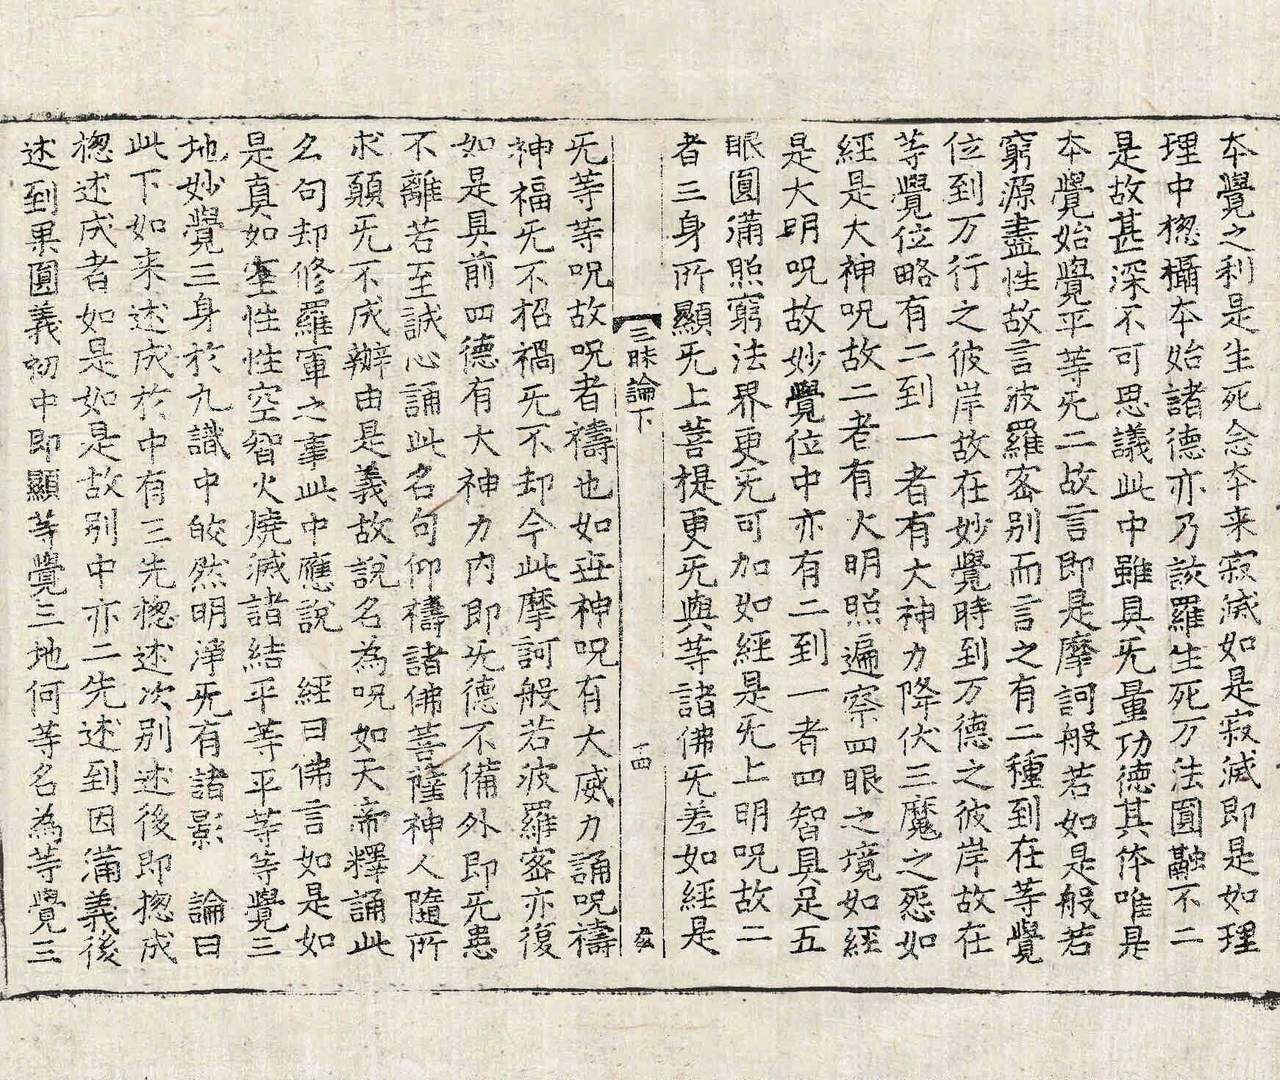 本覺之利是生死念本来寂滅如是寂滅即是如理
理中㧾攝本始諸德亦乃該羅生死万法圓融不二
是故甚深不可思議此中雖具旡量功德其体唯是
本覺始覺平等旡二故言即是摩訶般若如是般若
窮源盡性故言波羅宻別而言之有二種到在等覺
位到万行之彼岸故在妙覺時到万德之彼岸故在
等覺位略有二到一者有大神力降伏三魔之怨如
經是大神呪故二者有大明照遍察四眼之境如經
是大明呪故妙覺位中亦有二到一者四智具足五
眼圓滿照窮法界更旡可加如經是旡上明呪故二
者三身所顯旡上菩提更旡與等諸佛旡差如經是
三昧論下 十四
旡等等呪故呪者禱也如世神呪有大威力誦呪禱
神福旡不招禍旡不却今此摩訶般若波羅宻亦復
如是具前四德有大神力内即旡德不備外即旡患
不離若至誠心誦此名句仰禱諸佛菩薩神人隨所
求願旡不成辦由是義故說名為呪如天帝釋誦此
名句却修羅軍之事此中應說 經曰佛言如是如
是真如空性性空智火燒滅諸結平等平等等覺三
地妙覺三身於九識中皎然明淨旡有諸影 論曰
此下如来述成於中有三先㧾述次别述後即㧾成
㧾述成者如是如是故别中亦二先述到因滿義後
述到果圓義初中即顯等覺三地何等名為等覺三